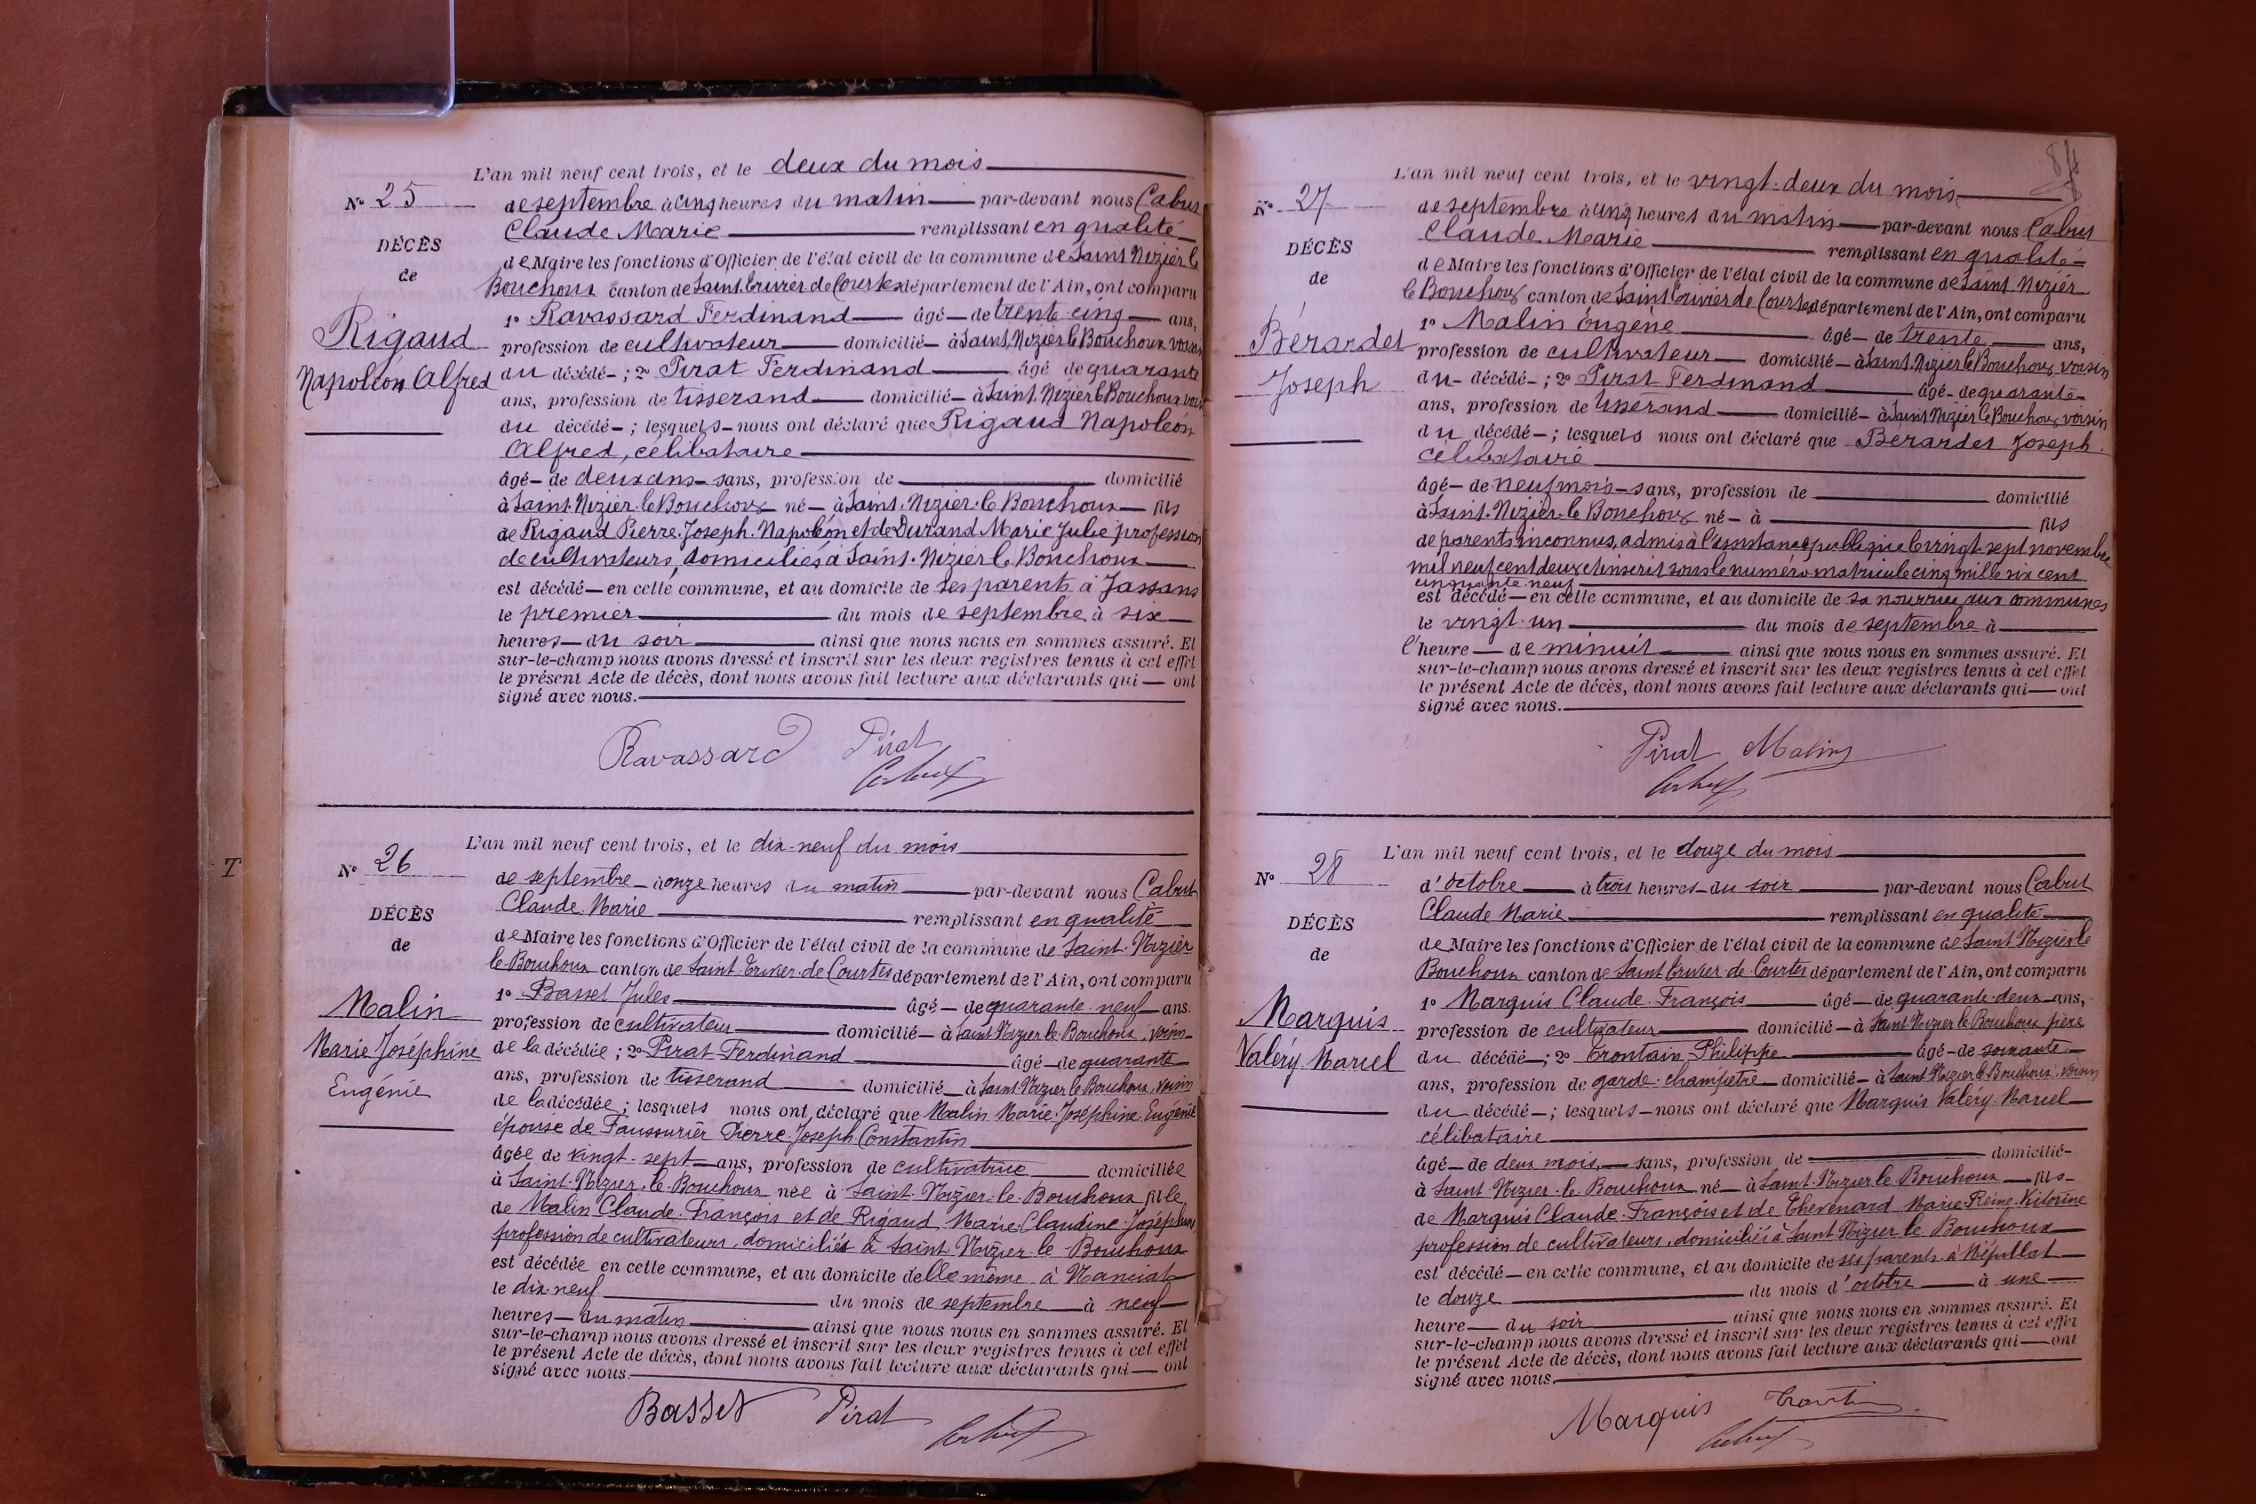 L'an mil neuf cent trois, et le deux du mois
N° 25
de septembre à cinq heures du matin par-devant nous Cabut
Claude Marie remplissant en qualité
DÉCÈS
de
de Maire les fonctions d'Officier de l'état civil de la commune de Saint Nizier le
Bouchoux canton de Saint Trivier de Courtes département de l'Ain, ont comparu
1° Ravassard Ferdinand âgé de trente cinq ans,
Rigaud
Napoléon Alfred
profession de cultivateur domicilié à Saint Nizier le Bouchoux voisin
du décédé ; 2° Pirat Ferdinand âgé de quarante
ans, profession de tisserand domicilié à Saint Nizier le Bouchoux voisin
du décédé ; lesquels nous ont déclaré que Rigaud Napoléon
Alfred, célibataire
âgé de deux ans sans, profession de domicilié
à Saint-Nizier-le Bouchoux né à Saint-Nizier-le Bouchoux fils
de Rigaud Pierre Joseph Napoléon et de Durand Marie Julie profession
de cultivateurs, domiciliés à Saint-Nizier le Bouchoux
est décédé en cette commune, et au domicile de ses parents à Jassans
le premier du mois de septembre à six
heures du soir ainsi que nous nous en sommes assuré. Et
sur-le-champ nous avons dressé et inscrit sur les deux registres tenus à cet effet
le présent Acte de décès, dont nous avons fait lecture aux déclarants qui ont
signé avec nous.
Ravassard Pirat
Cabut
L'an mil neuf cent trois, et le dix-neuf du mois
N° 26
de septembre à onze heures du matin par-devant nous Cabut
Claude Marie remplissant en qualité
DÉCÈS
de
de Maire les fonctions d'Officier de l'état civil de la commune de Saint-Nizier
le-Bouchoux canton de Saint-Trivier-de Courtes département de l'Ain, ont comparu
1° Basset Jules âgé de quarante neuf ans.
Malin
Marie Joséphine
Eugénie
profession de cultivateur domicilié à Saint Nizier le Bouchoux, voisin
de la décédée ; 2° Pirat Ferdinand âgé de quarante
ans, profession de tisserand domicilié à Saint Nizier le Bouchoux, voisin
de la décédée ; lesquels nous ont déclaré que Malin Marie Joséphine Eugénie
épouse de Faussurier Pierre Joseph Constantin
âgée de vingt-sept ans, profession de cultivatrice domiciliée
à Saint-Nizier-le-Bouchoux née à Saint-Nizier-le-Bouchoux fille
de Malin Claude François et de Rigaud Marie Claudine Joséphine
profession de cultivateurs, domiciliés à Saint-Nizier-le-Bouchoux
est décédée en cette commune, et au domicile d'elle même à Manciat
le dix neuf du mois de septembre à neuf
heures du matin ainsi que nous nous en sommes assuré. Et
sur-le-champ nous avons dressé et inscrit sur les deux registres tenus à cet effet
le présent Acte de décès, dont nous avons fait lecture aux déclarants qui ont
signé avec nous.
Basset Pirat
Cabut
L'an mil neuf cent trois, et le vingt-deux du mois
N° 27
de septembre à cinq heures du matin par-devant nous Cabut
Claude Marie remplissant en qualité
DÉCÈS
de
de Maire les fonctions d'Officier de l'état civil de la commune de Saint Nizier
le Bouchoux canton de Saint Trivier de Courtes département de l'Ain, ont comparu
1° Malin Eugène âgé de trente ans,
Bérardet
Joseph
profession de cultivateur domicilié à Saint-Nizier le Bouchoux voisin
du décédé ; 2° Pirat Ferdinand âgé de quarante
ans, profession de tisserand domicilié à Saint Nizier le Bouchoux, voisin
du décédé ; lesquels nous ont déclaré que Bérardet Joseph
célibataire
âgé de neuf mois sans, profession de domicilié
à Saint-Nizier-le Bouchoux né à fils
de parents inconnus, admis à l'assistance publique le vingt-sept novembre
mil neuf cent deux et inscrit sous le numéro matricule cinq mille six cent
cinquante neuf
est décédé en cette commune, et au domicile de sa nourrice aux communes
le vingt-un du mois de septembre à
l'heure de minuit ainsi que nous nous en sommes assuré. Et
sur-le-champ nous avons dressé et inscrit sur les deux registres tenus à cet effet
le présent Acte de décès, dont nous avons fait lecture aux déclarants qui ont
signé avec nous.
Pirat Malin
Cabut
L'an mil neuf cent trois, et le douze du mois
N° 28
d'octobre à trois heures du soir par-devant nous Cabut
Claude Marie remplissant en qualité
DÉCÈS
de
de Maire les fonctions d'Officier de l'état civil de la commune de Saint Nizier le
Bouchoux canton de Saint Trivier de Courtes département de l'Ain, ont comparu
1° Marquis Claude François âgé de quarante-deux ans,
Marquis
Valéry Marcel
profession de cultivateur domicilié à Saint Nizier le Bouchoux père
du décédé ; 2° Trontain Philippe âgé de soixante
ans, profession de garde-champêtre domicilié à Saint Nizier le Bouchoux voisin
du décédé ; lesquels nous ont déclaré que Marquis Valéry Marcel
célibataire
âgé de deux mois sans, profession de domicilié
à Saint Nizier-le Bouchoux né à Saint-Nizier le Bouchoux fils
de Marquis Claude François et de Thevenard Marie Reine Victorine
profession de cultivateurs, domiciliés à Saint Nizier le Bouchoux
est décédé en cette commune, et au domicile de ses parents à Népullat
le douze du mois d'octobre à une
heure du soir ainsi que nous nous en sommes assuré. Et
sur-le-champ nous avons dressé et inscrit sur les deux registres tenus à cet effet
le présent Acte de décès, dont nous avons fait lecture aux déclarants qui ont
signé avec nous.
Marquis Trontin
Cabut